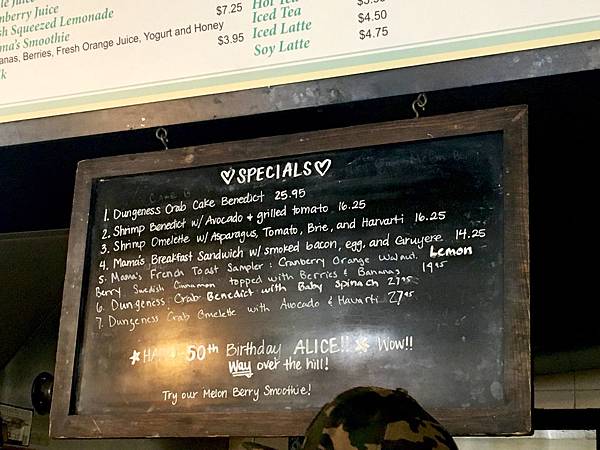 berry Juice
Squeezed Lemonade $7.25
Smoothie
Berries, Fresh Orange Juice, Yogurt and Honey
$3.95
Hot Tea
Iced Tea
Iced Latte $4.50
Soy Latte $4.75
♡SPECIALS♡
1. Dungeness Crab Cake Benedict 25.95
2. Shrimp Benedict w/ Avocado & grilled tomato 16.25
3. Shrimp Omelette w/ Asparagus, Tomato, Brie, and Harvarti 16.25
4. Mama's Breakfast Sandwich w/ smoked bacon, egg, and Gruyere 14.25
5. Mama's French Toast Sampler: Cranberry Orange Walnut, Lemon
Berry Swedish Cinnamon topped with Berries & Bananas 14.95
6. Dungeness Crab Benedict with Baby Spinach 27.95
7. Dungeness Crab Omelette with Avocado & Havarti 27.95
50th Birthday ALICE!! Wow!!
Way over the hill!
Try our Melon Berry Smoothie!